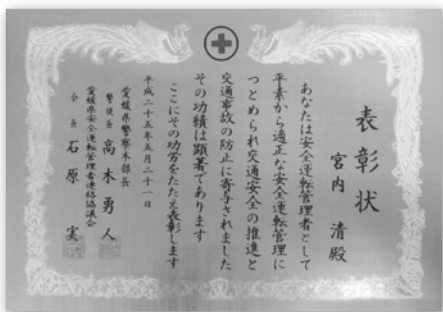 表彰状
宮内 清殿
あなたは安全運転管理者として
平素から適正な安全運転管理に
つとめられ交通安全の推進と
交通事故の防止に寄与されました
その功績は顕著であります
ここにその功労をたたえ表彰します
平成二十五年五月二十一日
愛媛県警察本部長
警視長 高木勇人
愛媛県安全運転管理者連絡協議会
会長 石原 実